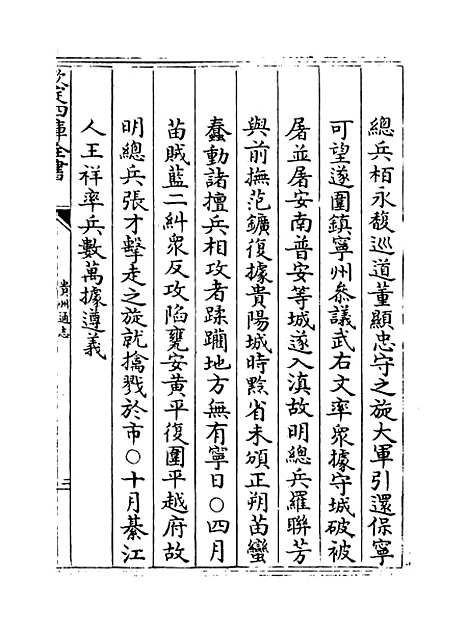 總兵栢永馥巡道董顯忠守之旋大軍引還保寧
可望遂圍鎮寧州叅議武右文率衆據守城破被
屠並屠安南普安等城遂入滇故明總兵羅聯芳
與前撫范鑛復據貴陽城時黔省未頒正朔苗蠻
蠢動諸擅兵相攻者蹂躪地方無有寧日○四月
苗賊藍二糾衆反攻陷甕安黃平復圍平越府故
明總兵張才擊走之旋就擒戮於市○十月綦江
人王祥率兵數萬據遵義
欽定四庫全書
貴州通志
三